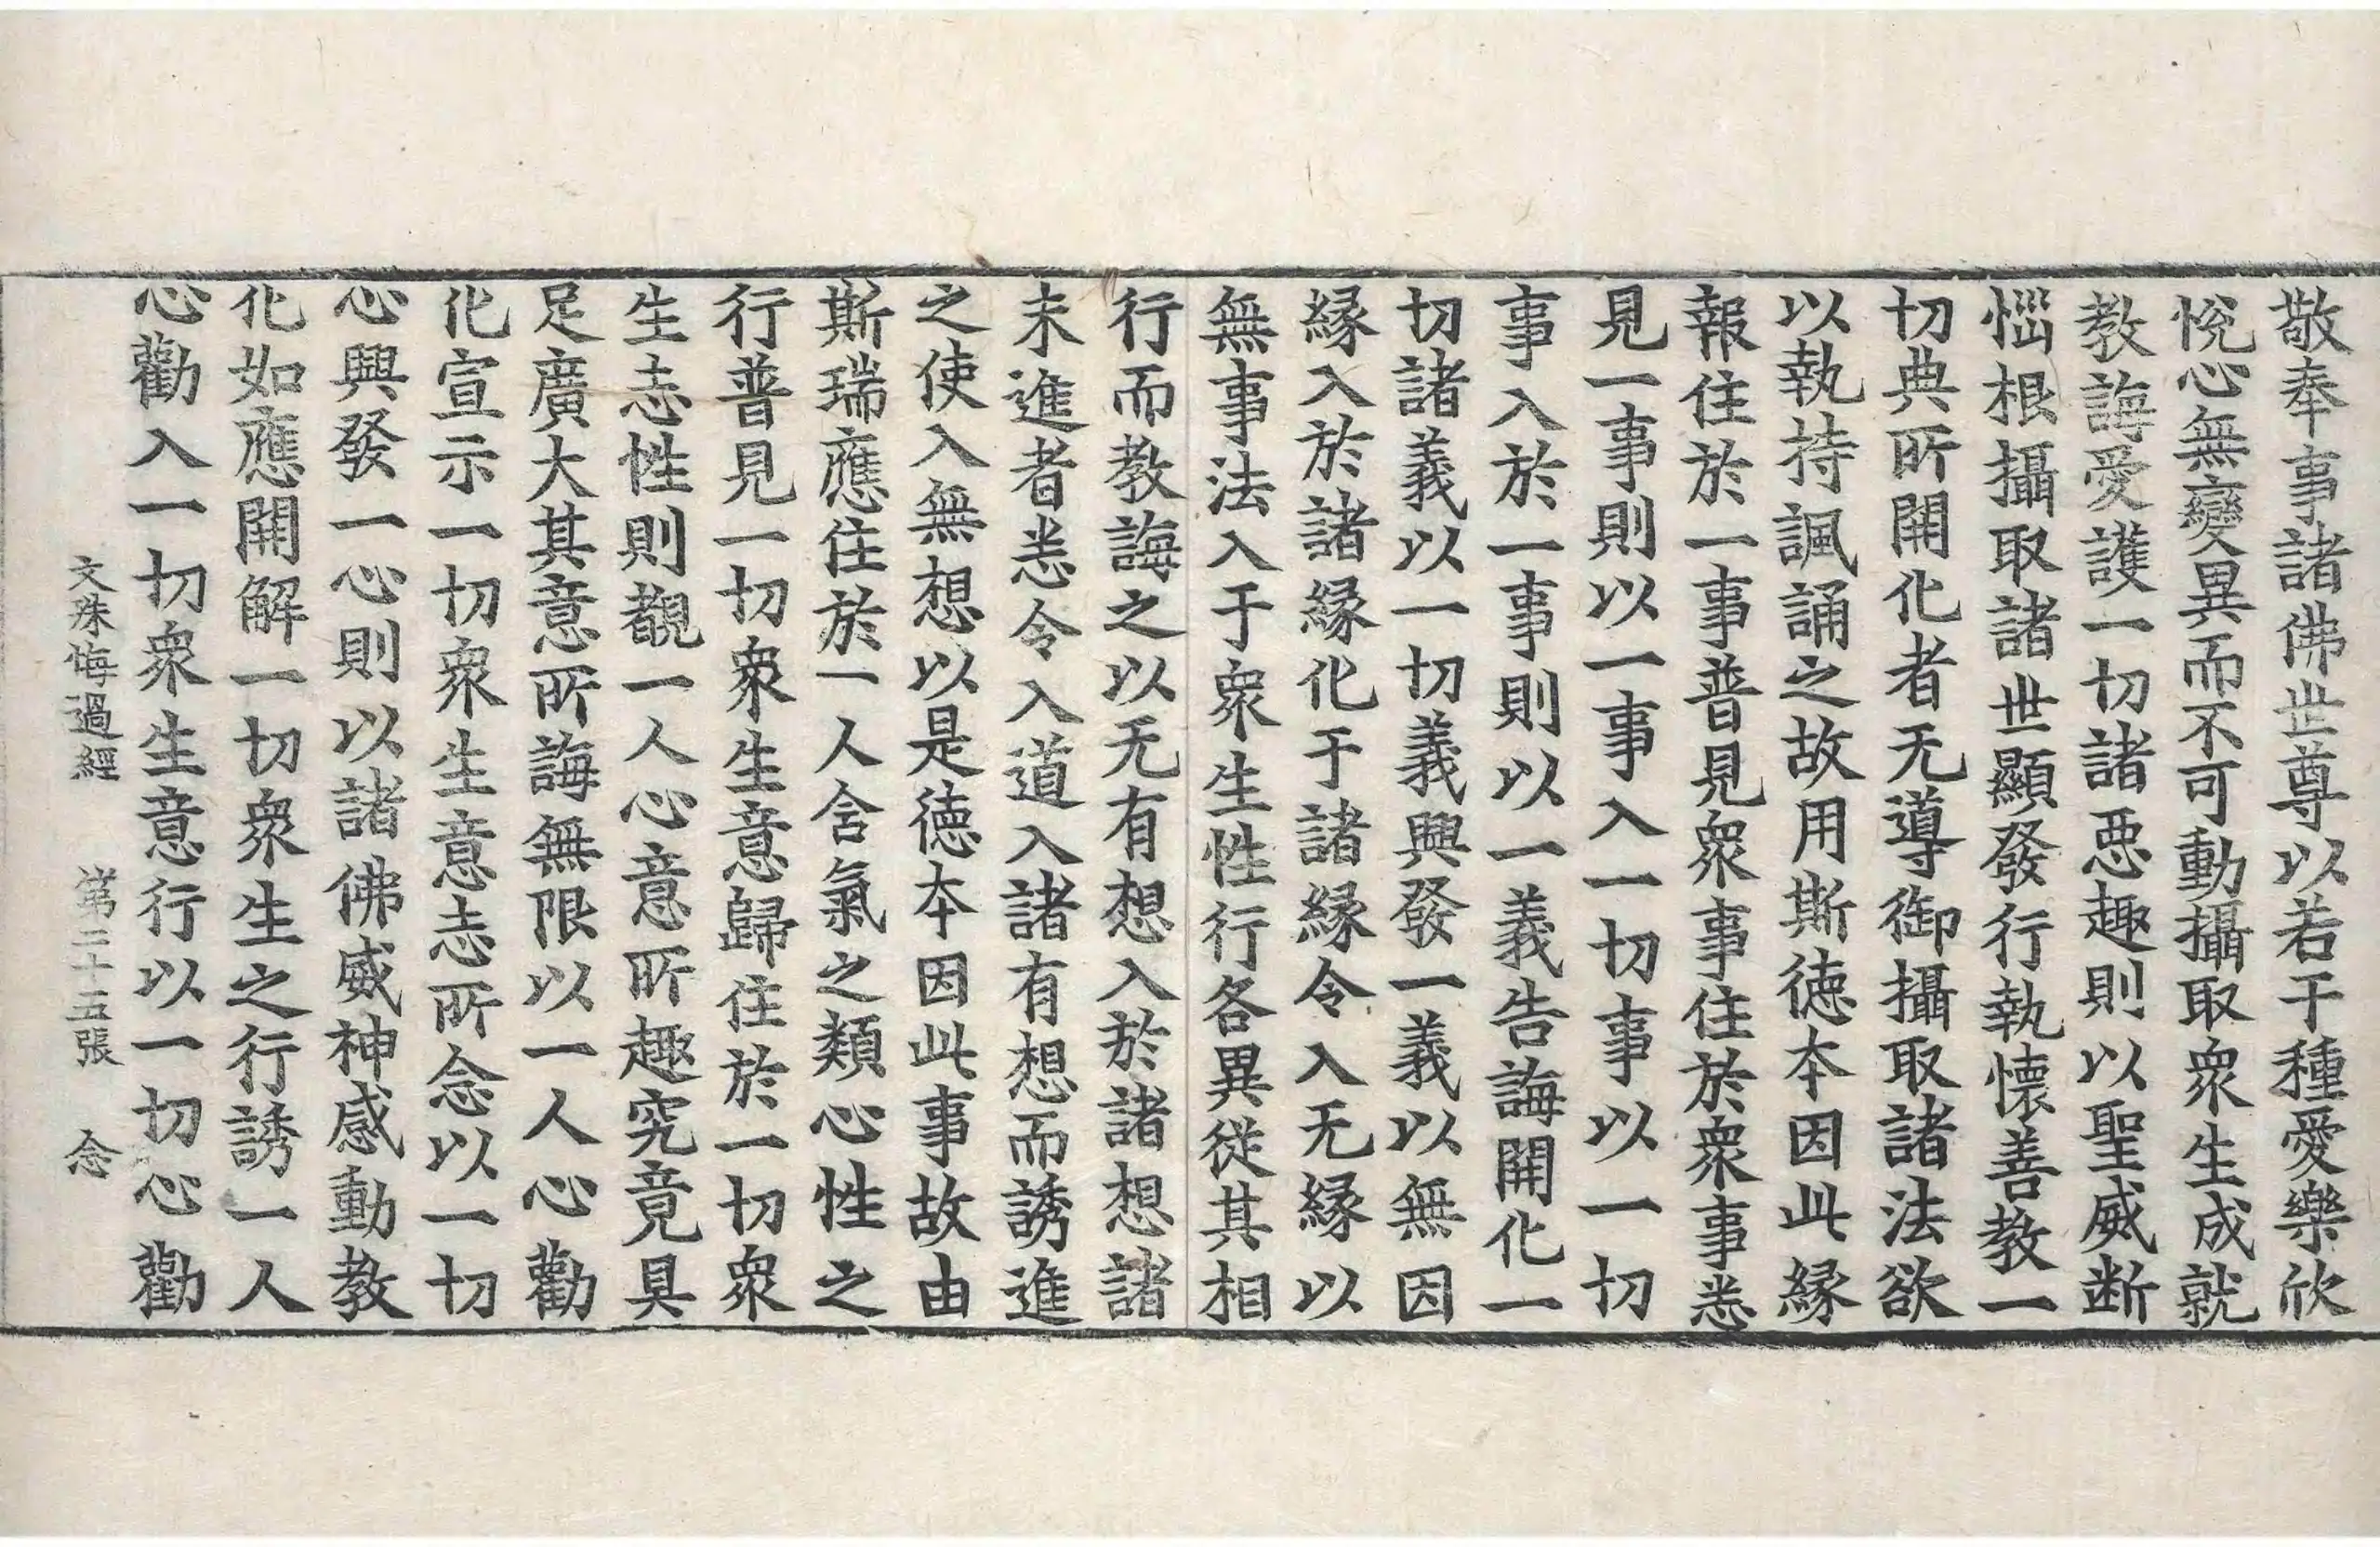 敬奉事諸佛世尊以若干種愛樂欣
悅心無變異而不可動攝取衆生成就
教誨愛護一切諸惡趣則以聖威断
惱根攝取諸世顯發行執懷善教一
切典所開化者无導御攝取諸法欲
以執持諷誦之故用斯徳本因此縁
報住於一事普見衆事住於衆事悉
見一事則以一事入一切事以一切
事入於一事則以一義告誨開化一
切諸義以一切義興發一義以無因
縁入於諸縁化于諸縁令入无縁以
無事法入于衆生性行各異從其相
行而教誨之以无有想入於諸想諸
未進者悉令入道入諸有想而誘進
之使入無想以是徳本因此事故由
斯瑞應住於一人含氣之類心性之
行普見一切衆生意歸住於一切衆
生志性則觀一人心意所趣究竟具
足廣大其意所誨無限以一人心勸
化宣示一切衆生意志所念以一切
心興發一心則以諸佛威神感動教
化如應開解一切衆生之行誘一人
心勸入一切衆生意行以一切心勸
文殊悔過經 第二十五張 念